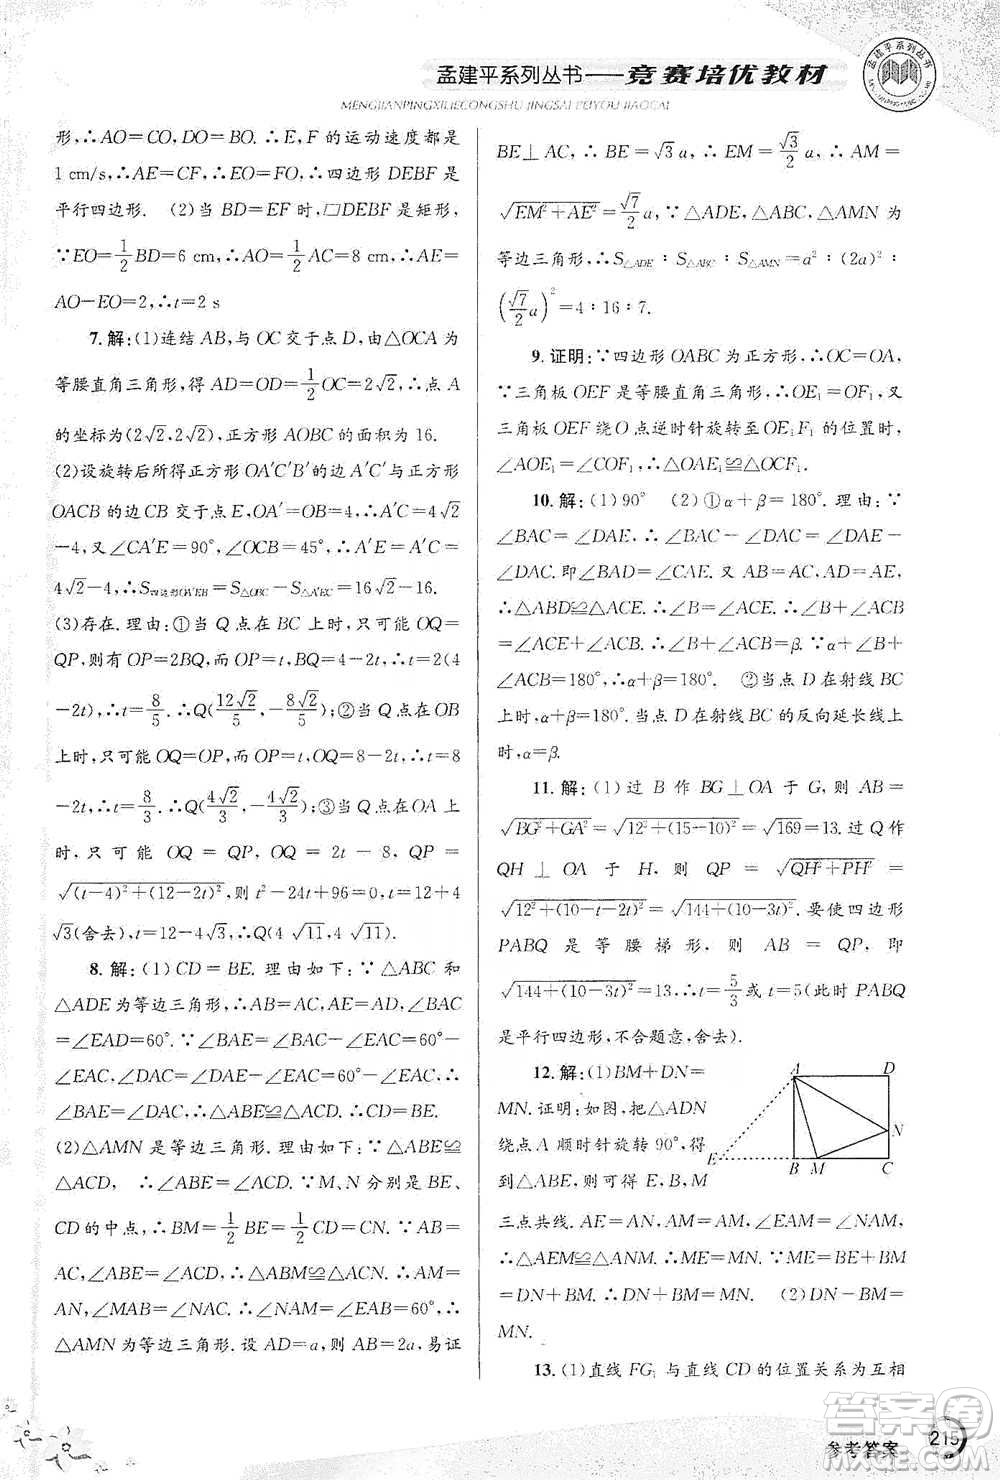 孟建平系列丛书——竞赛培优教材
MENGJIANPINGXILIECONGSHU JINGSAI PEIYOU JIAOCAI
形,∴AO=CO,DO=BO.∵E,F的运动速度都是
1 cm/s,∴AE=CF,∴EO=FO,∴四边形 DEBF 是
平行四边形. (2)当 BD=EF 时,□DEBF 是矩形,
∵EO=1/2BD=6 cm,∴AO=1/2AC=8 cm,∴AE=
AO-EO=2,∴t=2 s
7.解:(1)连结 AB,与 OC 交于点 D,由△OCA 为
等腰直角三角形,得 AD=OD=1/2OC=2√2,∴点 A
的坐标为(2√2,2√2),正方形 AOBC 的面积为 16.
(2)设旋转后所得正方形 OA′C′B′的边 A′C′与正方形
OACB 的边 CB 交于点 E,OA′=OB=4,A′C=4√2
-4,又∠CA′E=90°,∠OCB=45°,∴A′E=A′C=
4√2-4,∴S四边形OA′EB=S△OBC-S△A′EC=16√2-16.
(3)存在.理由:①当 Q 点在 BC 上时,只可能 OQ=
QP,则有 OP=2BQ,而 OP=t,BQ=4-2t,∴t=2(4
-2t),∴t=8/5,∴Q(12√2/5,-8√2/5);②当 Q 点在 OB
上时,只可能 OQ=OP,而 OP=t,OQ=8-2t,∴t=8
-2t,∴t=8/3.∴Q(4√2/3,-4√2/3);③当 Q 点在 OA 上
时,只可能 OQ = QP, OQ = 2t - 8, QP =
√(t-4)²+(12-2t)²,则 t²-24t+96=0,t=12+4
√3(舍去),t=12-4√3,∴Q(4√11,4√11).
8.解:(1)CD=BE.理由如下:∵△ABC 和
△ADE为等边三角形,∴AB=AC,AE=AD,∠BAC
=∠EAD=60°.∵∠BAE=∠BAC-∠EAC=60°-
∠EAC,∠DAC=∠DAE-∠EAC=60°-∠EAC,
∴∠BAE=∠DAC,∴△ABE≌△ACD.∴CD=BE.
(2)△AMN 是等边三角形.理由如下:∵△ABE≌
△ACD, ∴∠ABE=∠ACD.∵M、N 分别是 BE、
CD 的中点,∴BM=1/2BE=1/2CD=CN.∵AB=
AC,∠ABE=∠ACD,∴△ABM≌△ACN.∴AM=
AN,∠MAB=∠NAC.∴∠NAM=∠BAC=60°.∴
△AMN 为等边三角形.设 AD=a,则 AB=2a,易证
BE⊥AC,∴BE=√3a,∴EM=√3/2a,∴AM=
√EM²+AE²=√7/2a,∵△ADE、△ABC、△AMN 为
等边三角形,∴S△ADE:S△ABC:S△AMN=a²:(2a)²:
(√7/2a)²=4:16:7.
9.证明:∵四边形 OABC 为正方形,∴OC=OA,
∵三角板 OEF 是等腰直角三角形,∴OE₁=OF₁,又
三角板 OEF 绕 O 点逆时针旋转至 OE₁F₁ 的位置时,
∠AOE₁=∠COF₁,∴△OAE₁≌△OCF₁.
10.解:(1)90° (2)①α+β=180°.理由:∵
∠BAC=∠DAE,∴∠BAC-∠DAC=∠DAE-
∠DAC.即∠BAD=∠CAE.又 AB=AC,AD=AE,
∴△ABD≌△ACE.∴∠B=∠ACE.∴∠B+∠ACB
=∠ACE+∠ACB,∴∠B+∠ACB=β.∵α+∠B+
∠ACB=180°,∴α+β=180°. ②当点 D 在射线 BC
上时,α+β=180°.当点 D 在射线 BC 的反向延长线上
时,α=β.
11.解:(1)过 B 作 BG⊥OA 于 G,则 AB=
√BG²+GA²=√12²+(15-10)²=√169=13.过 Q 作
QH⊥OA 于 H,则 QP=√QH²+PH²=
√12²+(10-t-2t)²=√144+(10-3t)².要使四边形
PABQ 是等腰梯形,则 AB=QP,即
√144+(10-3t)²=13,∴t=5/3或 t=5(此时 PABQ
是平行四边形,不合题意,舍去).
12.解:(1)BM+DN=
MN.证明:如图,把△ADN
绕点 A 顺时针旋转 90°,得
到△ABE,则可证得 E、B、M
三点共线.AE=AN,AM=AM,∠EAM=∠NAM,
∴△AEM≌△ANM.∴ME=MN.∵ME=BE+BM
=DN+BM,∴DN+BM=MN. (2)DN-BM=
MN.
A D N E B M C
13.(1)直线 FG₁ 与直线 CD 的位置关系为互相
参考答案
215
答案圈